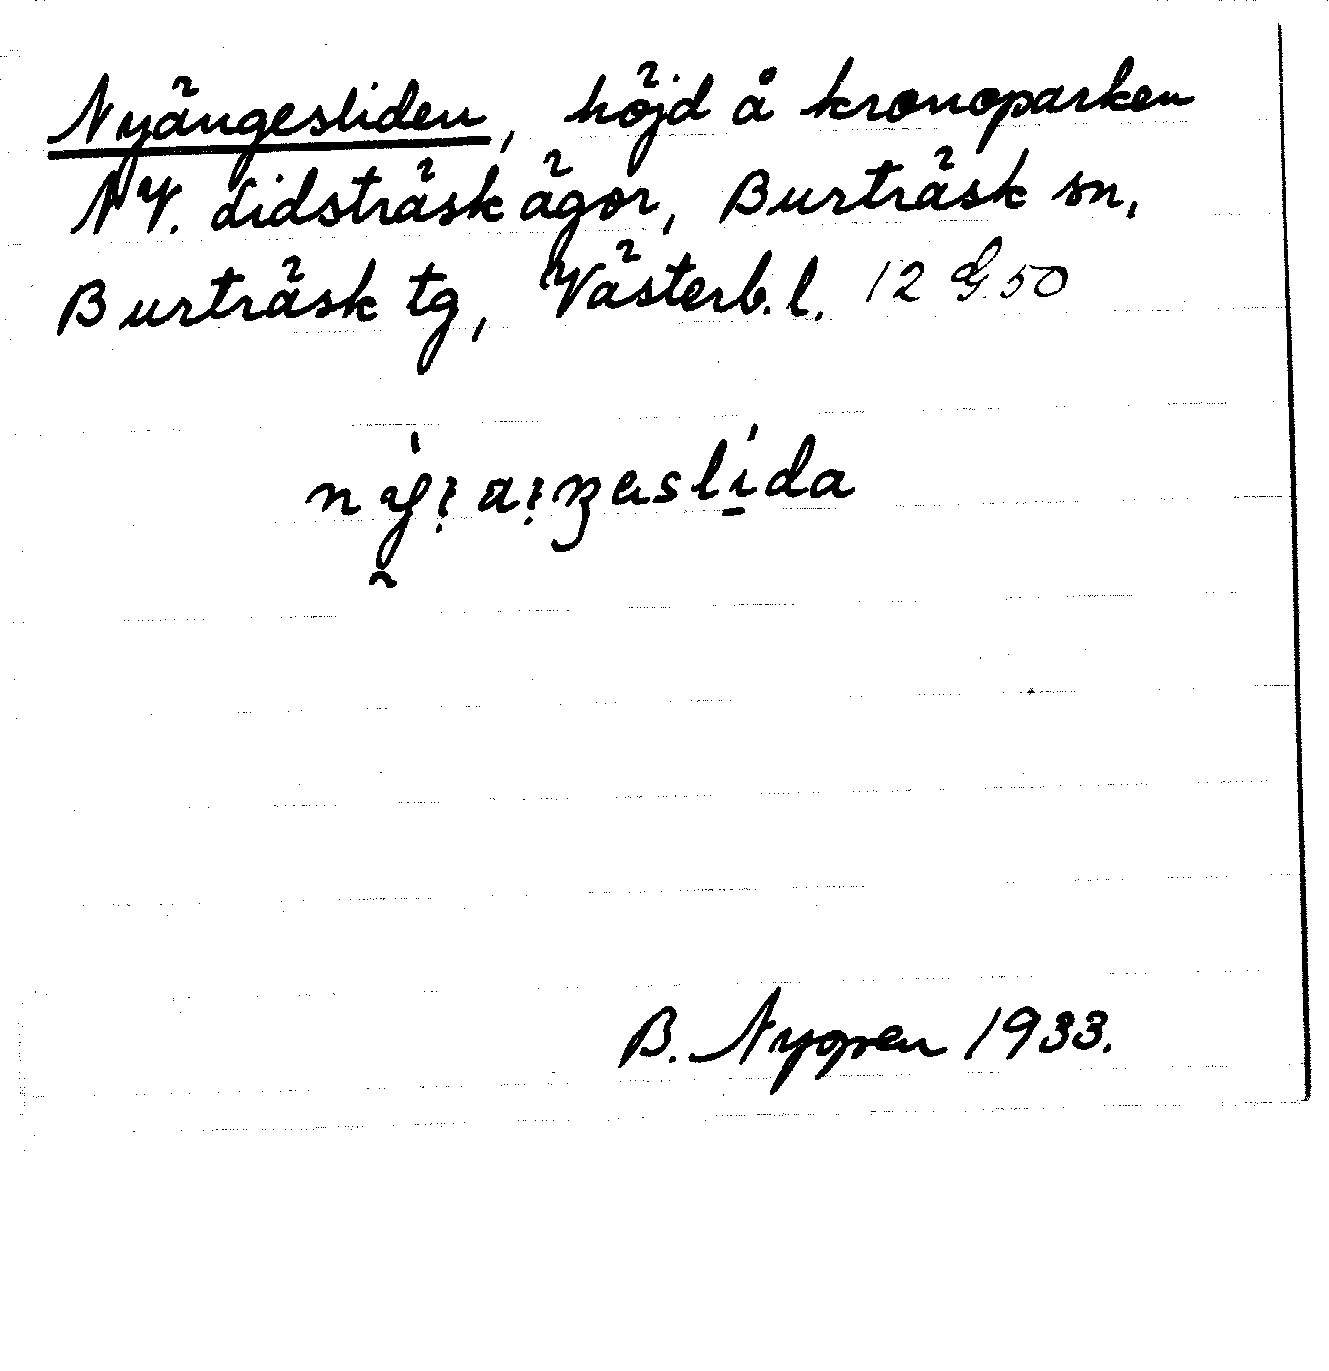 Nyängesliden, höjd å kronoparken
NV. Lidsträsk ägor, Burträsk sn,
Burträsk tg, Västerb. l. 12 G. 50
B. Nygren 1933.